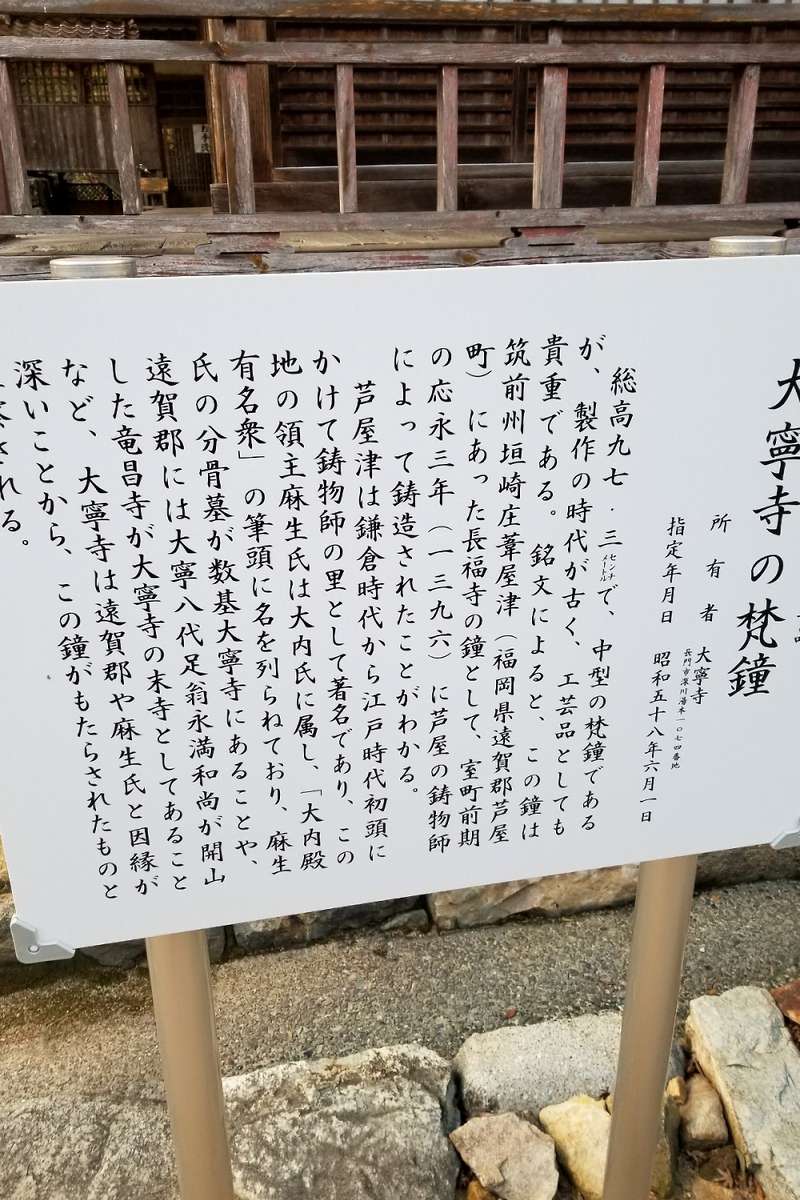 大寧寺の梵鐘
所有者 大寧寺
長門市深川湯本一〇七四番地
指定年月日 昭和五十八年六月一日
総高九七．三センチメートルで、中型の梵鐘である
が、製作の時代が古く、工芸品としても
貴重である。銘文によると、この鐘は
筑前州垣崎庄葦屋津（福岡県遠賀郡芦屋
町）にあった長福寺の鐘として、室町前期
の応永三年（一三九六）に芦屋の鋳物師
によって鋳造されたことがわかる。
芦屋津は鎌倉時代から江戸時代初頭に
かけて鋳物師の里として著名であり、この
地の領主麻生氏は大内氏に属し、「大内殿
有名衆」の筆頭に名を列らねており、麻生
氏の分骨墓が数基大寧寺にあることや、
遠賀郡には大寧八代足翁永満和尚が開山
した竜昌寺が大寧寺の末寺としてあること
など、大寧寺は遠賀郡や麻生氏と因縁が
深いことから、この鐘がもたらされたものと
される。